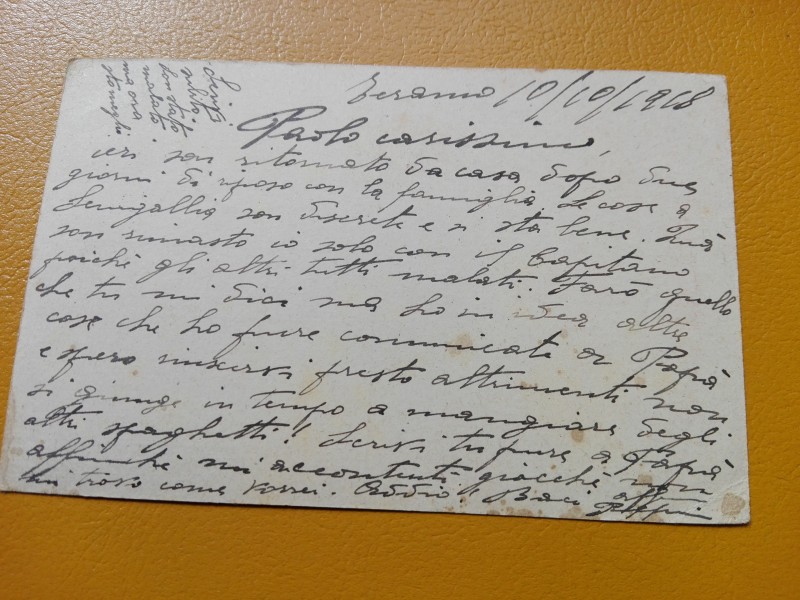 Teramo 10/10/1918
Paolo carissimo,
ieri son ritornato da casa dopo due
giorni di riposo con la famiglia. Le cose a
Senigallia son discrete e si sta bene. Quà
son rimasto io solo con il Capitano
poichè gli altri tutti malati. Farò quello
che tu mi dici ma ho in idea altre
cose che ho pure comunicate a Papà
e spero riuscirvi presto altrimenti non
si giunge in tempo a mangiare degli
altri spaghetti! Scrivi tu pure a Papà
affinchè mi accontenti giacchè non
mi trovo come vorrei. Addio Baci aff
subito
son stato
malato
ma ora